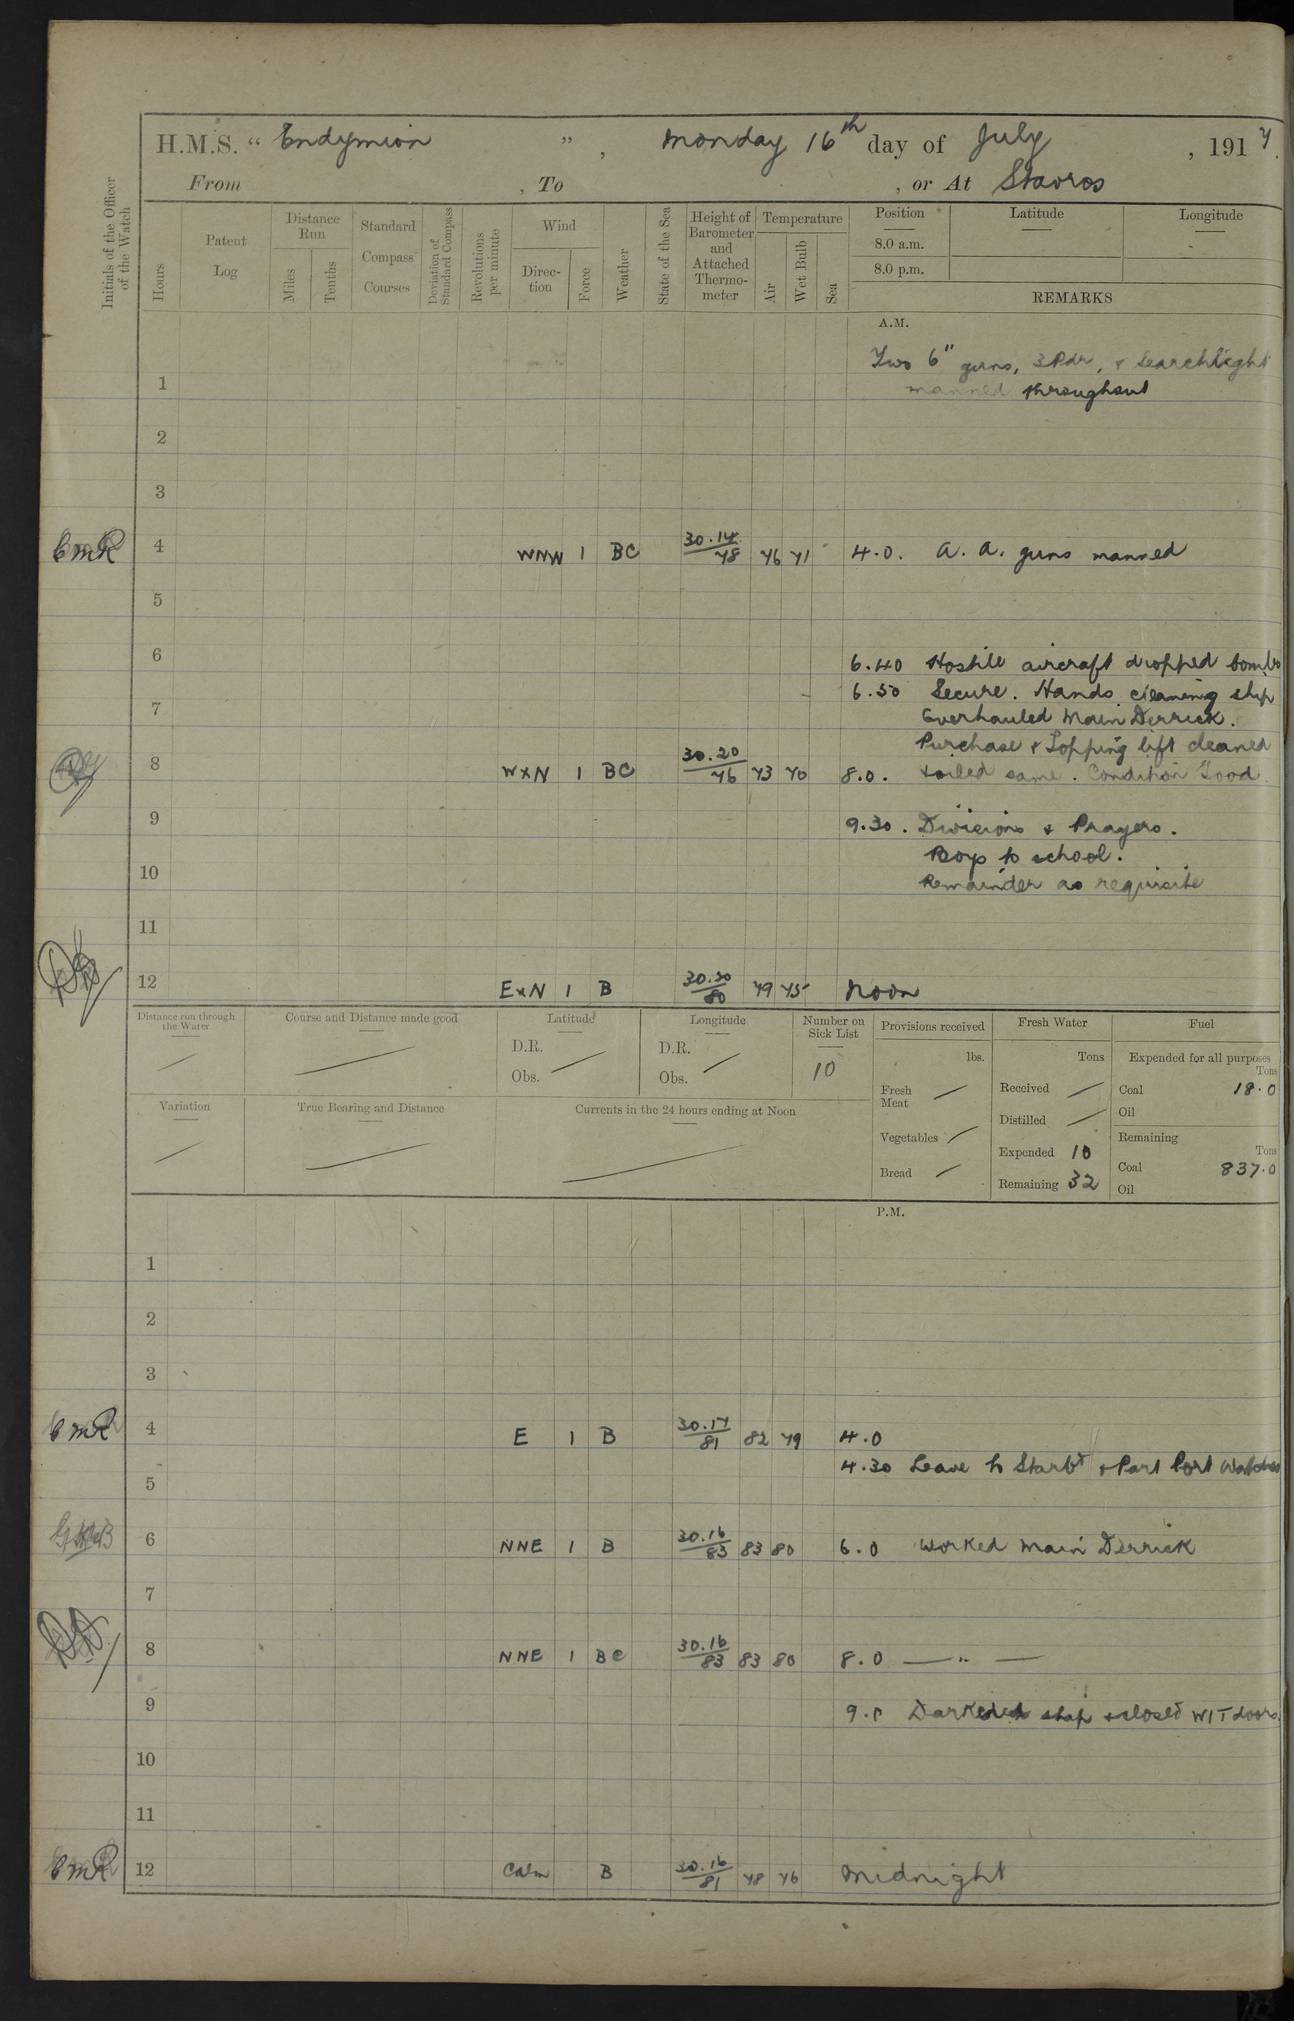 H.M.S. " Endymion ", Monday 16th day of July, 1917.
From , To , or At Stavros
Initials of the Officer of the Watch
Hours
Patent Log
Distance Run
Miles
Tenths
Standard Compass Courses
Deviation of Standard Compass
Revolutions per minute
Wind
Direc-tion
Force
Weather
State of the Sea
Height of Barometer and Attached Thermo-meter
Temperature
Air
Wet Bulb
Sea
Position
8.0 a.m.
8.0 p.m.
Latitude
Longitude
REMARKS
A.M.
Two 6" guns, 3Pdr, & Searchlight
1 manned throughout
2
3
CMR 4 WNW 1 BC 30.14/78 76 71 4.0. A. A. guns manned
5
6 6.40 Hostile aircraft dropped bombs
6.50 Secure. Hands cleaning ship
7 Overhauled Main Derrick.
Purchase & Topping lift cleaned
8 WxN 1 BC 30.20/76 73 70 8.0. & oiled same. Condition Good
9 9.30. Divisions & Prayers.
Boys to school.
10 Remainder as requisite
11
12 ExN 1 B 30.20/80 79 75 Noon
Distance run through the Water
Course and Distance made good
Latitude
D.R.
Obs.
Longitude
D.R.
Obs.
Number on Sick List
10
Provisions received
lbs.
Fresh Meat
Vegetables
Bread
Fresh Water
Tons
Received
Distilled
Expended 10
Remaining 32
Fuel
Expended for all purposes
Tons
Coal 18.0
Oil
Remaining
Tons
Coal 837.0
Oil
Variation
True Bearing and Distance
Currents in the 24 hours ending at Noon
P.M.
1
2
3
CMR 4 E 1 B 30.17/81 82 79 4.0
4.30 Leave to Starbd & Part Port Watches
5
6 NNE 1 B 30.16/83 83 80 6.0 Worked Main Derrick
7
8 NNE 1 BC 30.16/83 83 80 8.0 — " —
9 9.0 Darkened ship & closed W/T doors.
10
11
CMR 12 Calm B 30.16/81 78 76 Midnight